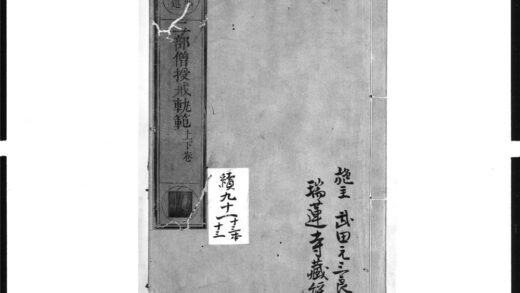 施主 武田元三良
瑞蓮寺藏
續九十一
十三
二部僧授戒軌範 上下卷